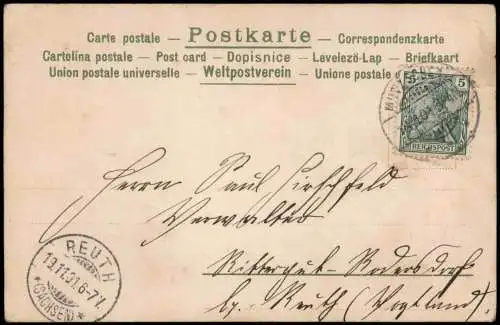 Carte postale – Postkarte – Correspondenzkarte
Cartolina postale – Post card – Dopisnice – Levelező-Lap – Briefkaart
Union postale universelle – Weltpostverein – Unione postale
5 5
REICHSPOST
Herrn Paul Hirschfeld
Verwalter
Rittergut-Rodersdorf
bg. Reuth (Vogtland).
REUTH
19.11.01.6-7N
*(SACHSEN)*